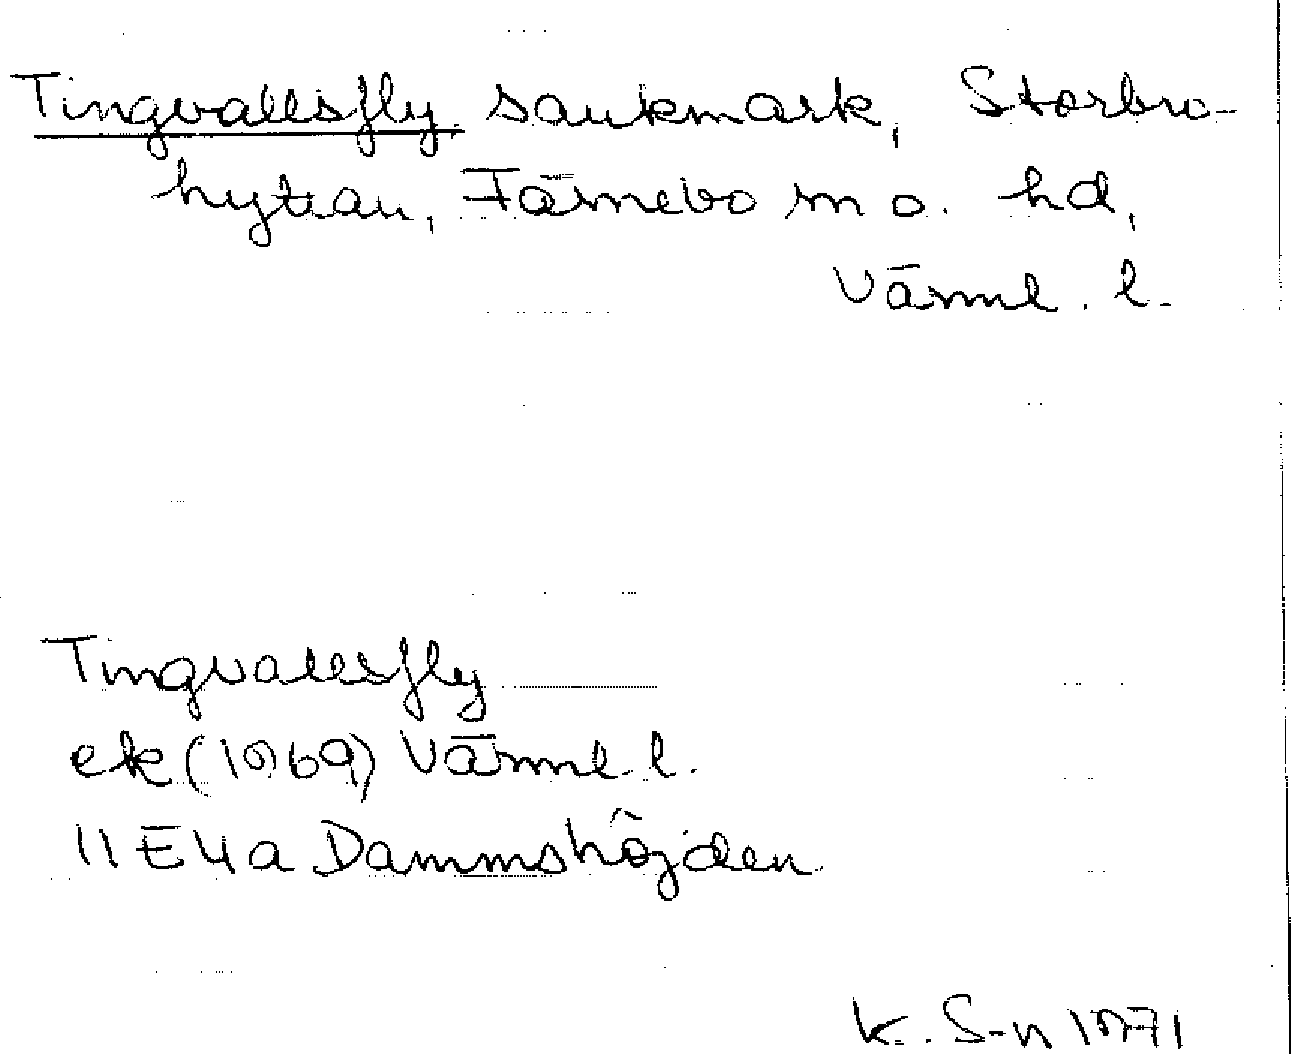 Tingvallsfly sankmark, Storbro-
hyttan, Färnebo sn o. hd,
Värml. l.
Tingvallsfly
ek (1969) Värml. l.
11E4a Dammshöjden
K. S-n 1971